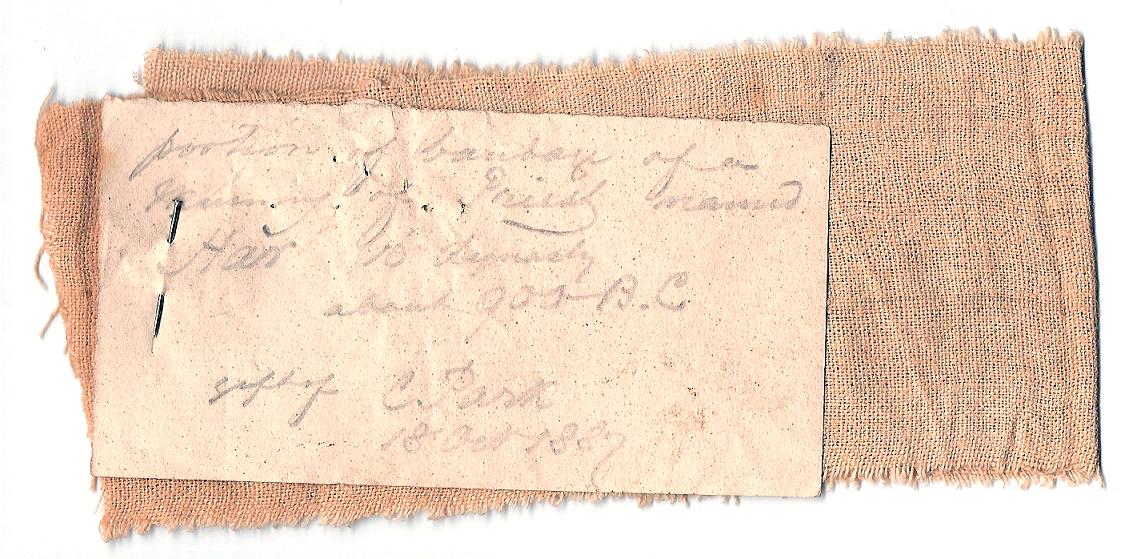 portion of bandage of a
Mummy of a Priest named
Har dynasty
about 900 B.C
gift of C. Park
18 Oct 1887